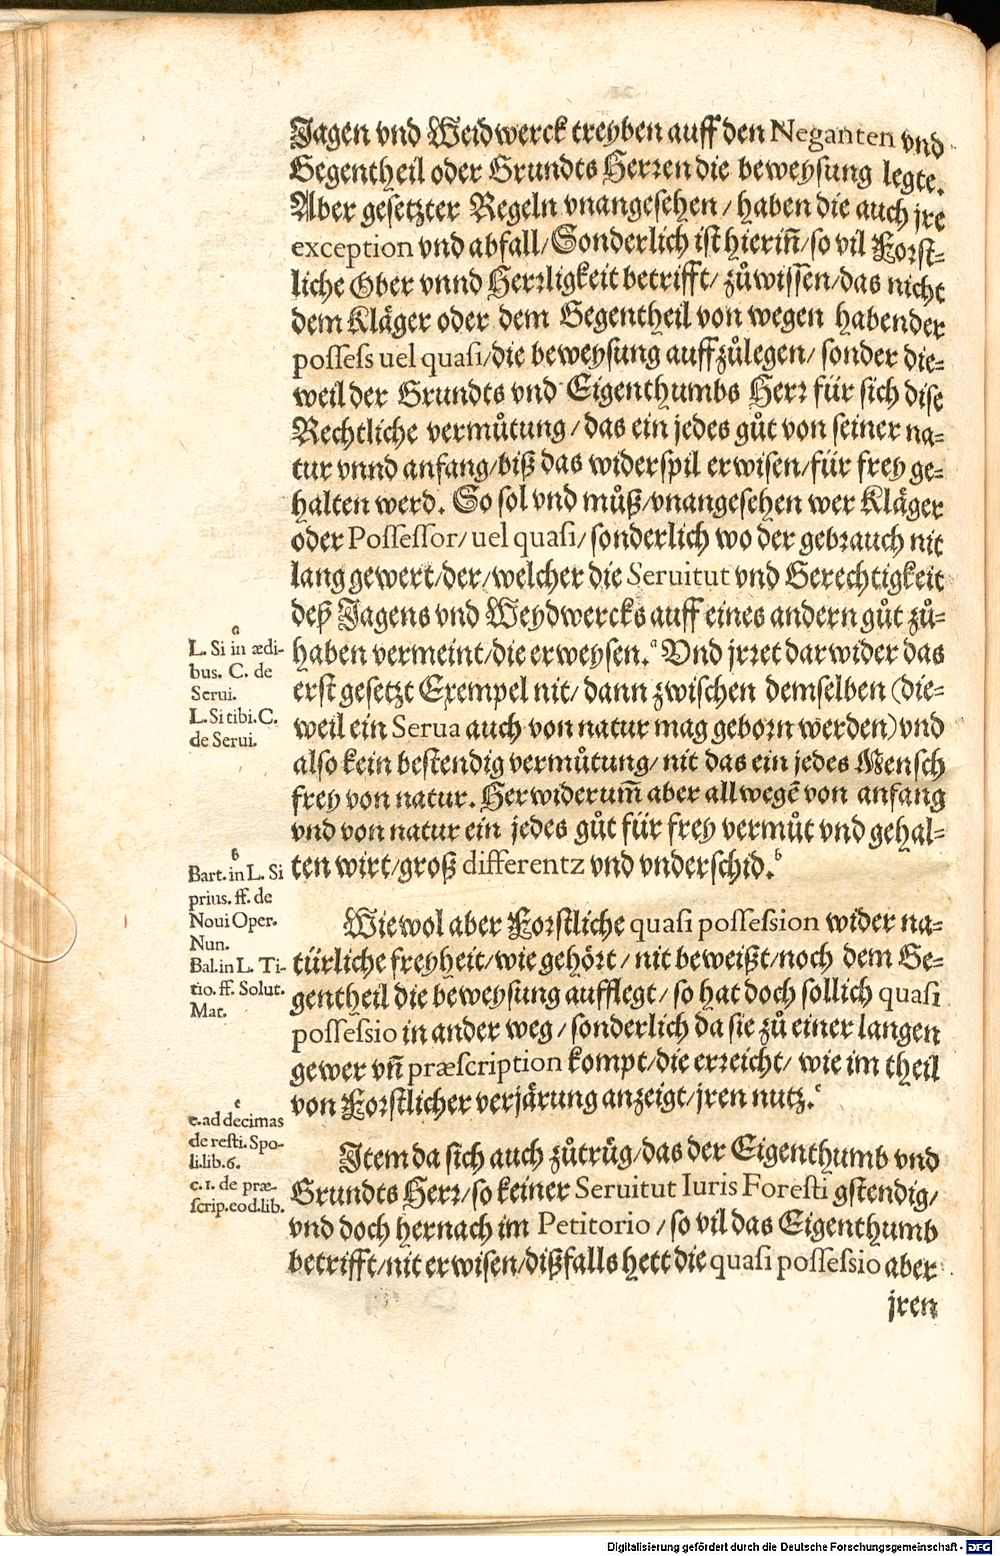 Jagen vnd Weidwerck treyben auff den Neganten vnd
Gegentheil oder Grundts Herꝛen die beweysung legte.
Aber gesetzter Regeln vnangesehen / haben die auch jre
exception vnd abfall / Sonderlich ist hierin̄ / so vil Foꝛst-
liche Ober vnnd Herꝛligkeit betrifft / zůwissen / das nicht
dem Kläger oder dem Gegentheil von wegen habender
possess uel quasi / die beweysung auffzůlegen / sonder die-
weil der Grundts vnd Eigenthumbs Herꝛ für sich dise
Rechtliche vermůtung / das ein jedes gůt von seiner na-
tur vnnd anfang / biß das widerspil erwisen / für frey ge-
halten werd. So sol vnd můß / vnangesehen wer Kläger
oder Possessor / uel quasi / sonderlich wo der gebꝛauch nit
lang gewert / der / welcher die Seruitut vnd Gerechtigkeit
deß Jagens vnd Weydwercks auff eines andern gůt zů-
haben vermeint / die erweysen. a Vnd jrꝛet darwider das
erst gesetzt Exempel nit / dann zwischen demselben (die-
weil ein Serua auch von natur mag geboꝛn werden) vnd
also kein bestendig vermůtung / nit das ein jedes Mensch
frey von natur. Herwiderum̄ aber allwegē von anfang
vnd von natur ein jedes gůt für frey vermůt vnd gehal-
ten wirt / groß differentz vnd vnderschid. b
Wiewol aber Foꝛstliche quasi possession wider na-
türliche freyheit / wie gehöꝛt / nit beweißt / noch dem Ge-
gentheil die beweysung aufflegt / so hat doch sollich quasi
possessio in ander weg / sonderlich da sie zů einer langen
gewer vn̄ præscription kompt / die erꝛeicht / wie im theil
von Foꝛstlicher verjärung anzeigt / jren nutz. c
Item da sich auch zůtrüg / das der Eigenthumb vnd
Grundts Herꝛ / so keiner Seruitut Iuris Foresti gstendig /
vnd doch hernach im Petitorio / so vil das Eigenthumb
betrifft / nit erwisen / dißfalls hett die quasi possessio aber
jren
a
L. Si in ædi-
bus. C. de
Serui.
L. Si tibi. C.
de Serui.
b
Bart. in L. Si
prius. ff. de
Noui Oper.
Nun.
Bal. in L. Ti-
tio. ff. Solut.
Mat.
c
c. ad decimas
de resti. Spo-
li. lib. 6.
c. 1. de præ-
scrip. eod. lib.
Digitalisierung gefördert durch die Deutsche Forschungsgemeinschaft - DFG